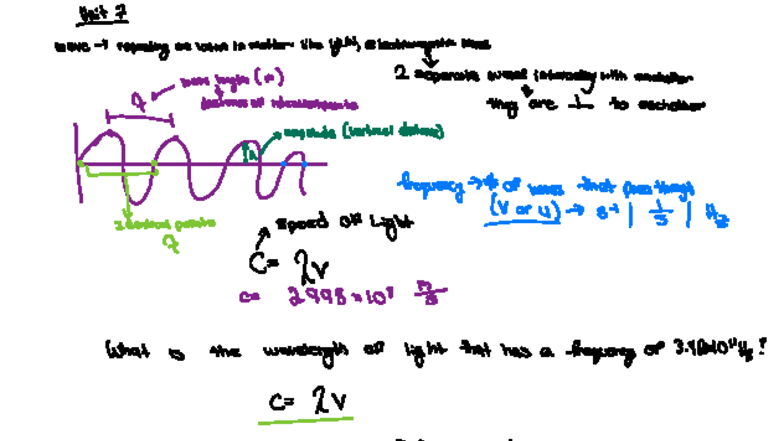 Unit 7
wave → repeating in matter like light, electromagnetic wave
2 separate waves interacting with eachother
they are ⊥ to eachother
wave length (m)
λ
amplitude (vertical distance)
frequency → # of waves that pass through
(V or u) → s⁻¹ | 1/s | Hz
identical points
λ
speed off light
C = λv
c= 2.998 × 10⁸ m/s
What is the wavelength off light that has a frequency of Hz?
C = λv